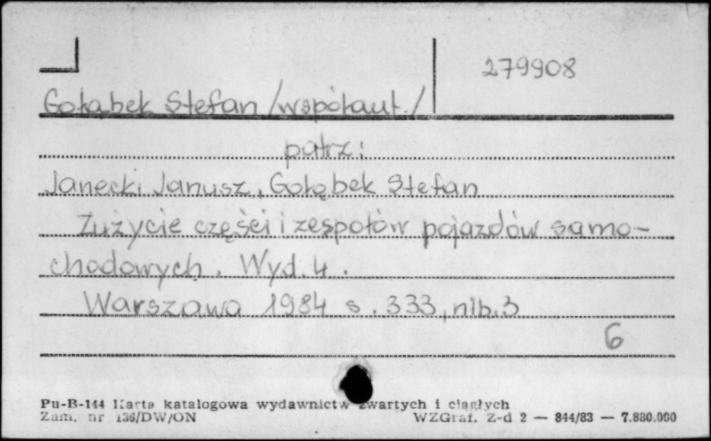 279908
Gołąbek Stefan /współaut./
patrz:
Janecki Janusz, Gołębek Stefan
Zużycie części i zespołów pojazdów samo-
chodowych. Wyd. 4.
Warszawa 1984 s. 333, nlb. 3
6
Pu-B-144 Karta katalogowa wydawnictw zwartych i ciągłych
Zam. nr 136/DW/ON WZGraf. Z-d 2 — 844/83 — 7.880.000